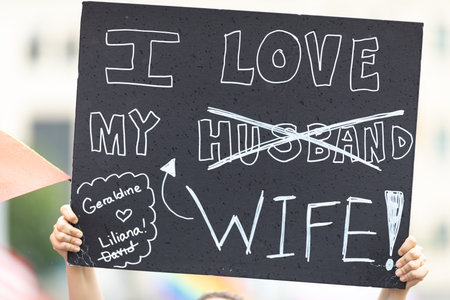 I LOVE
MY HUSBAND
WIFE!
Geraldine
♡
Liliana!
David